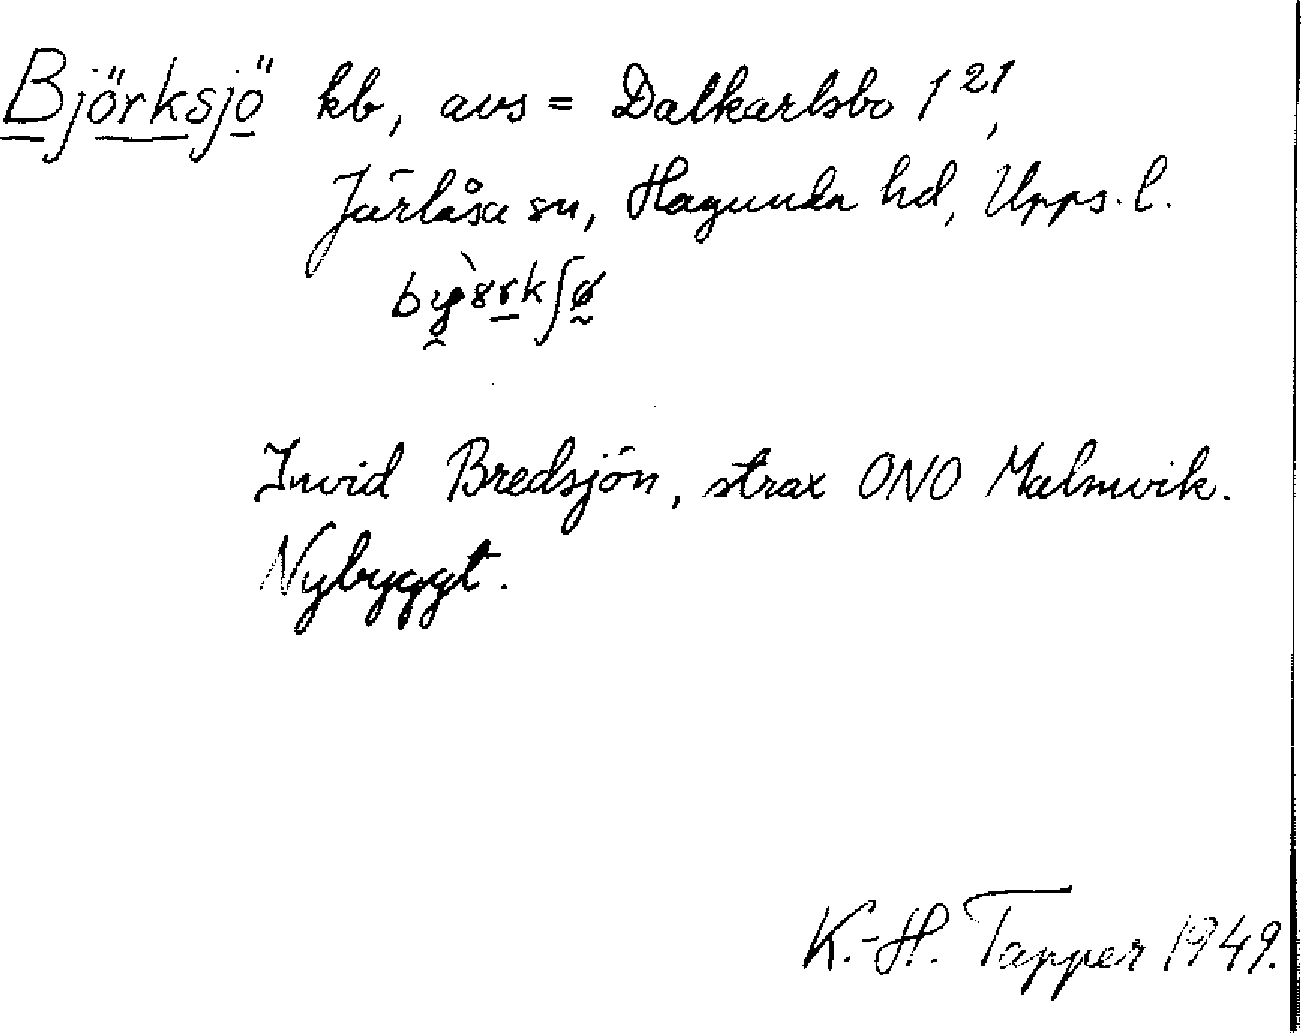 Björksjö kb, avs = Dalkarlsbo 1²¹,
Järlåsa sn, Hagunda hd, Upps. l.
Invid Bredsjön, strax ONO Malmvik.
Nybyggt.
K.-H. Tapper 1949.